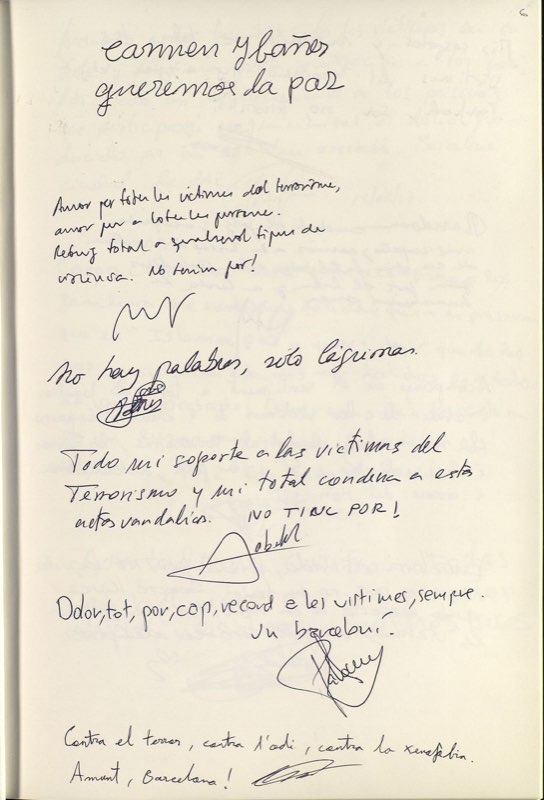 6
Carmen Ybañes
queremos la paz
Amor per totes les victimes del terrorisme,
amor per a totes les persones.
Rebuig total a qualsevol tipus de
violencia. No tenim por!
No hay palabras, sólo lágrimas.
Todo mi soporte a las victimas del
Terrorismo y mi total condena a estos
actos vandalicos. NO TINC POR!
Dolor, tot, por, cap, record a les victimes, sempre.
Un barceloní.
Contra el terror, contra l'odi, contra la xenofòbia.
Amunt, Barcelona!